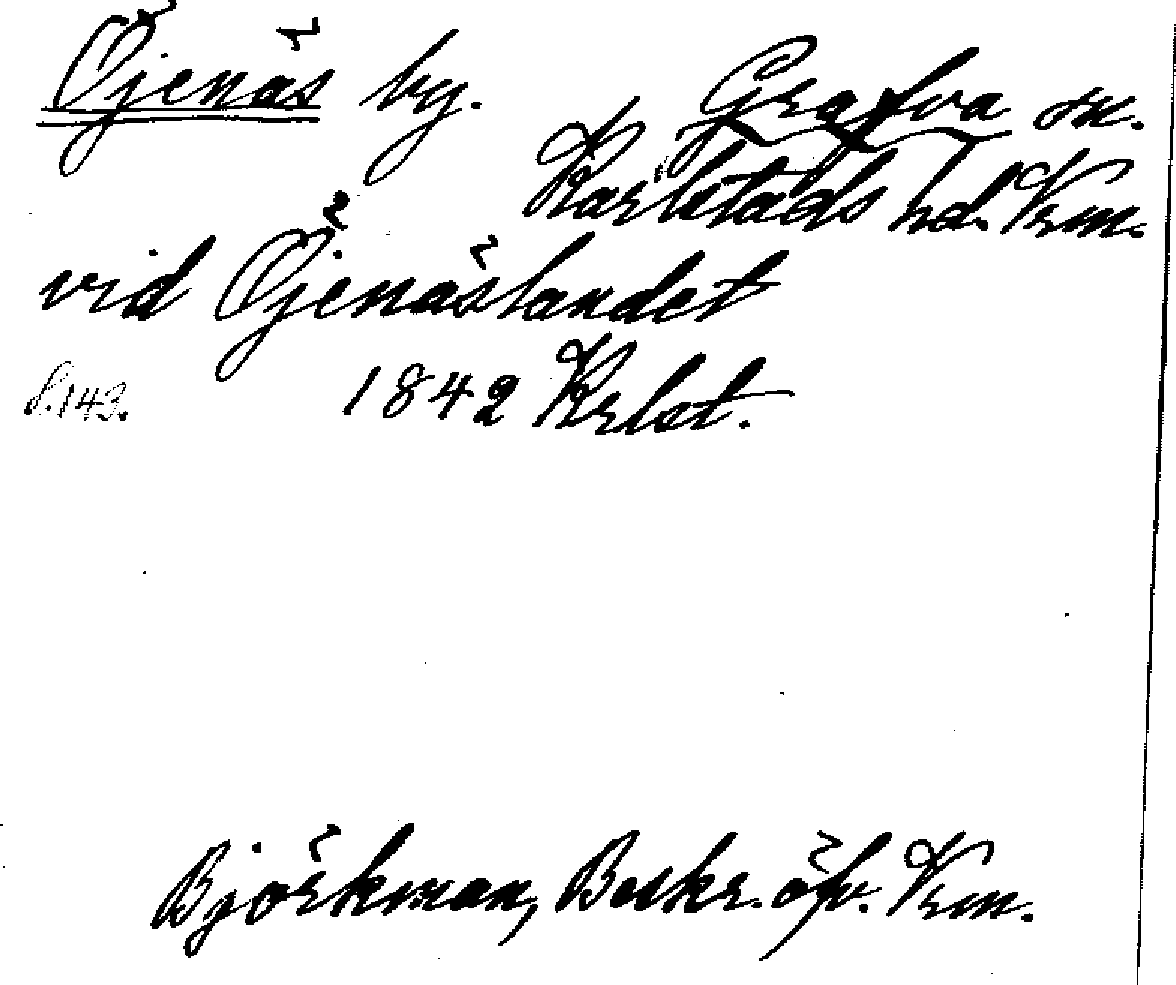 Öjenäs by. Grafva sn.
Karlstads hd. Vrm.
vid Öjenäslandet
S. 142. 1842 Krlst.
Björkman, Beskr. öfv. Vrm.